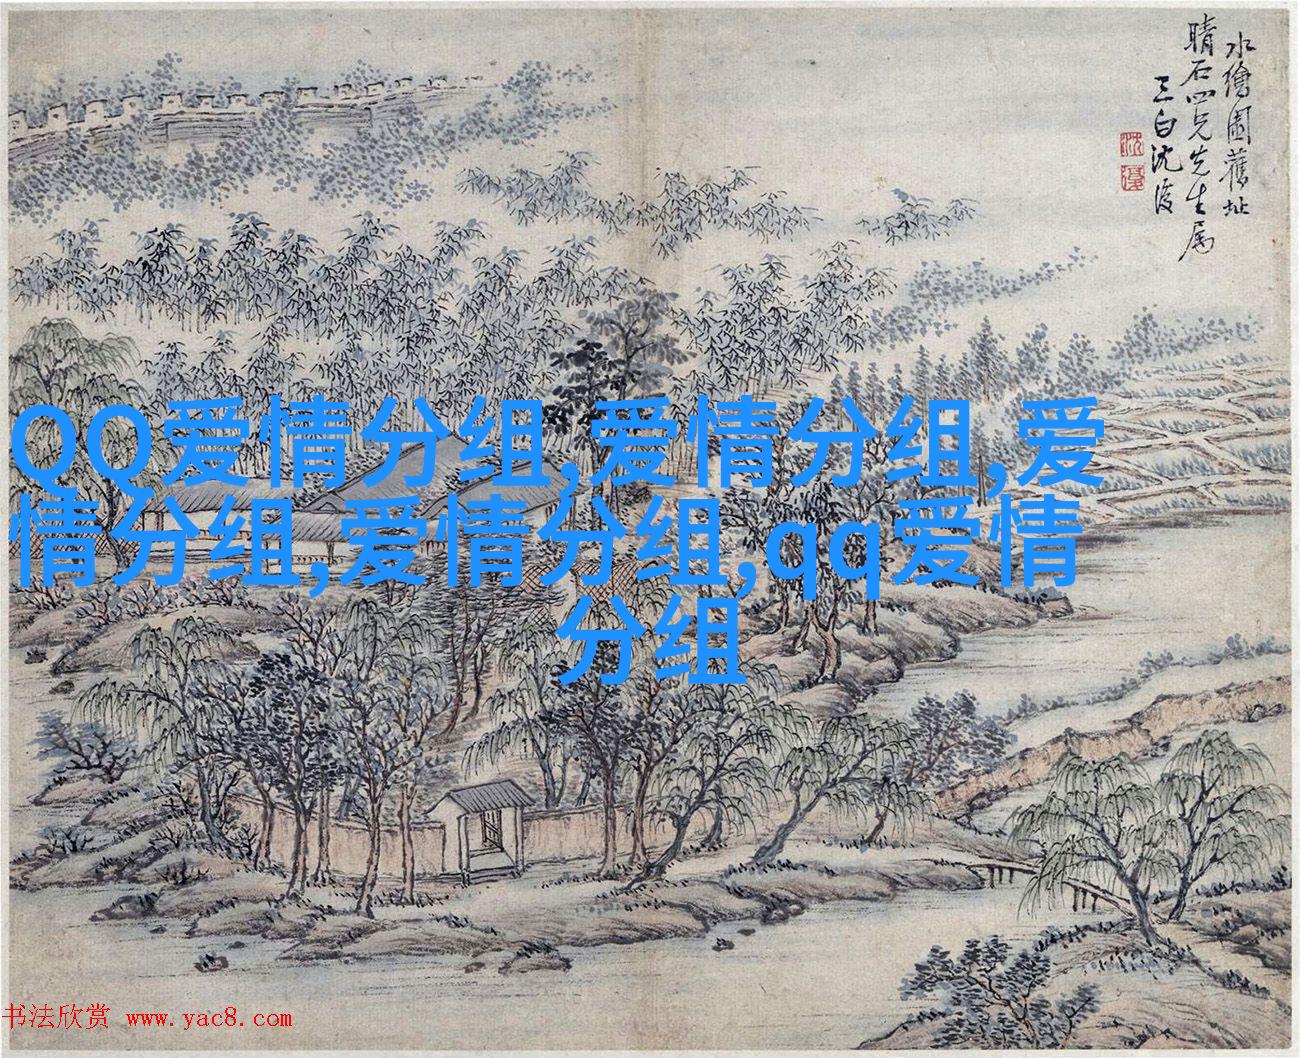 水繪園舊址
晴石四兄先生属
三白沈復
沈
復
QQ爱情分组,爱情分组,爱
情分组,爱情分组,qq爱情
分组
书法欣赏 www.yac8.com